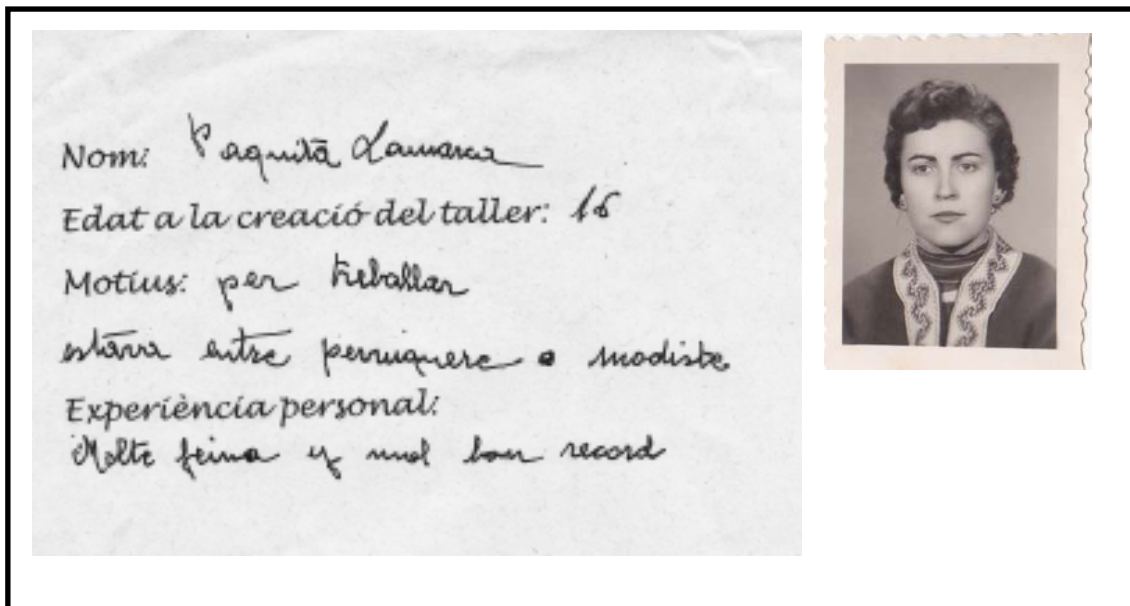 Nom: Paquita Lamarca
Edat a la creació del taller: 16
Motius: per treballar
estava entre perruquere o modiste
Experiència personal:
Molte feina y mol bon record